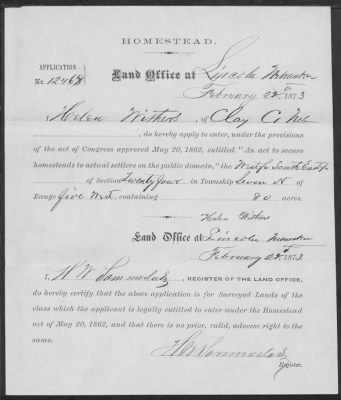 HOMESTEAD.
APPLICATION
No. 12468
Land Office at Lincoln Nebraska
February 22d 1873
I, Helen Withers, of Clay Co Neb
, do hereby apply to enter, under the provisions
of the act of Congress approved May 20, 1862, entitled "An act to secure
homesteads to actual settlers on the public domain," the West ½ South East ¼
of Section Twenty four in Township Seven N of
Range Five West, containing 80 acres.
Helen Withers
Land Office at Lincoln Nebraska
February 22d 1873
I, REGISTER OF THE LAND OFFICE,
do hereby certify that the above application is for Surveyed Lands of the
class which the applicant is legally entitled to enter under the Homestead
act of May 20, 1862, and that there is no prior, valid, adverse right to the
same.
Register.